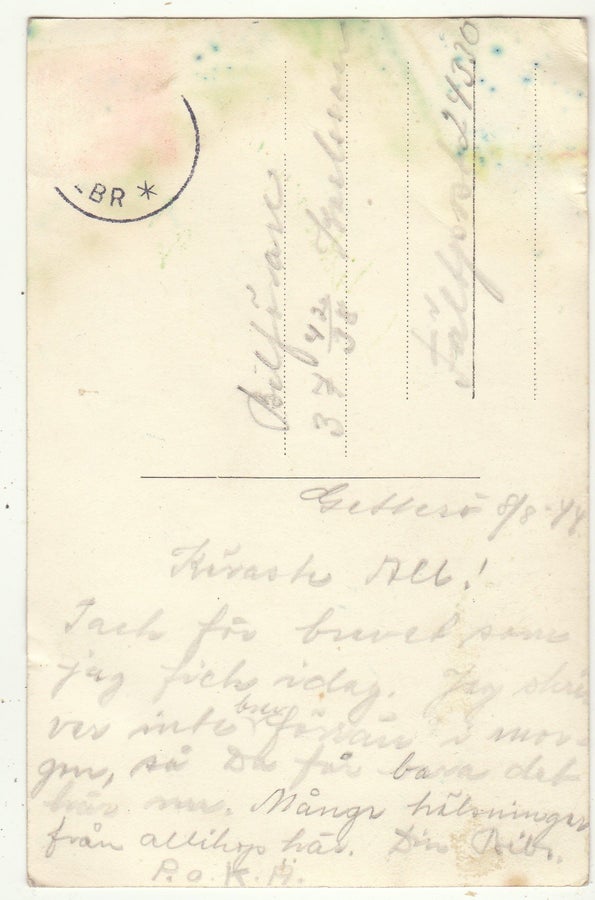 -BR *
Bilförare
37 42/38
Fältpost 24570
Getterö 8/8-44.
Käraste All!
Tack för brevet som
jag fick idag. Jag skri
ver inte brev förrän i mor-
gon, så Du får bara det
här nu. Många hälsningar
från allihop här. Din
P.o.K.H.